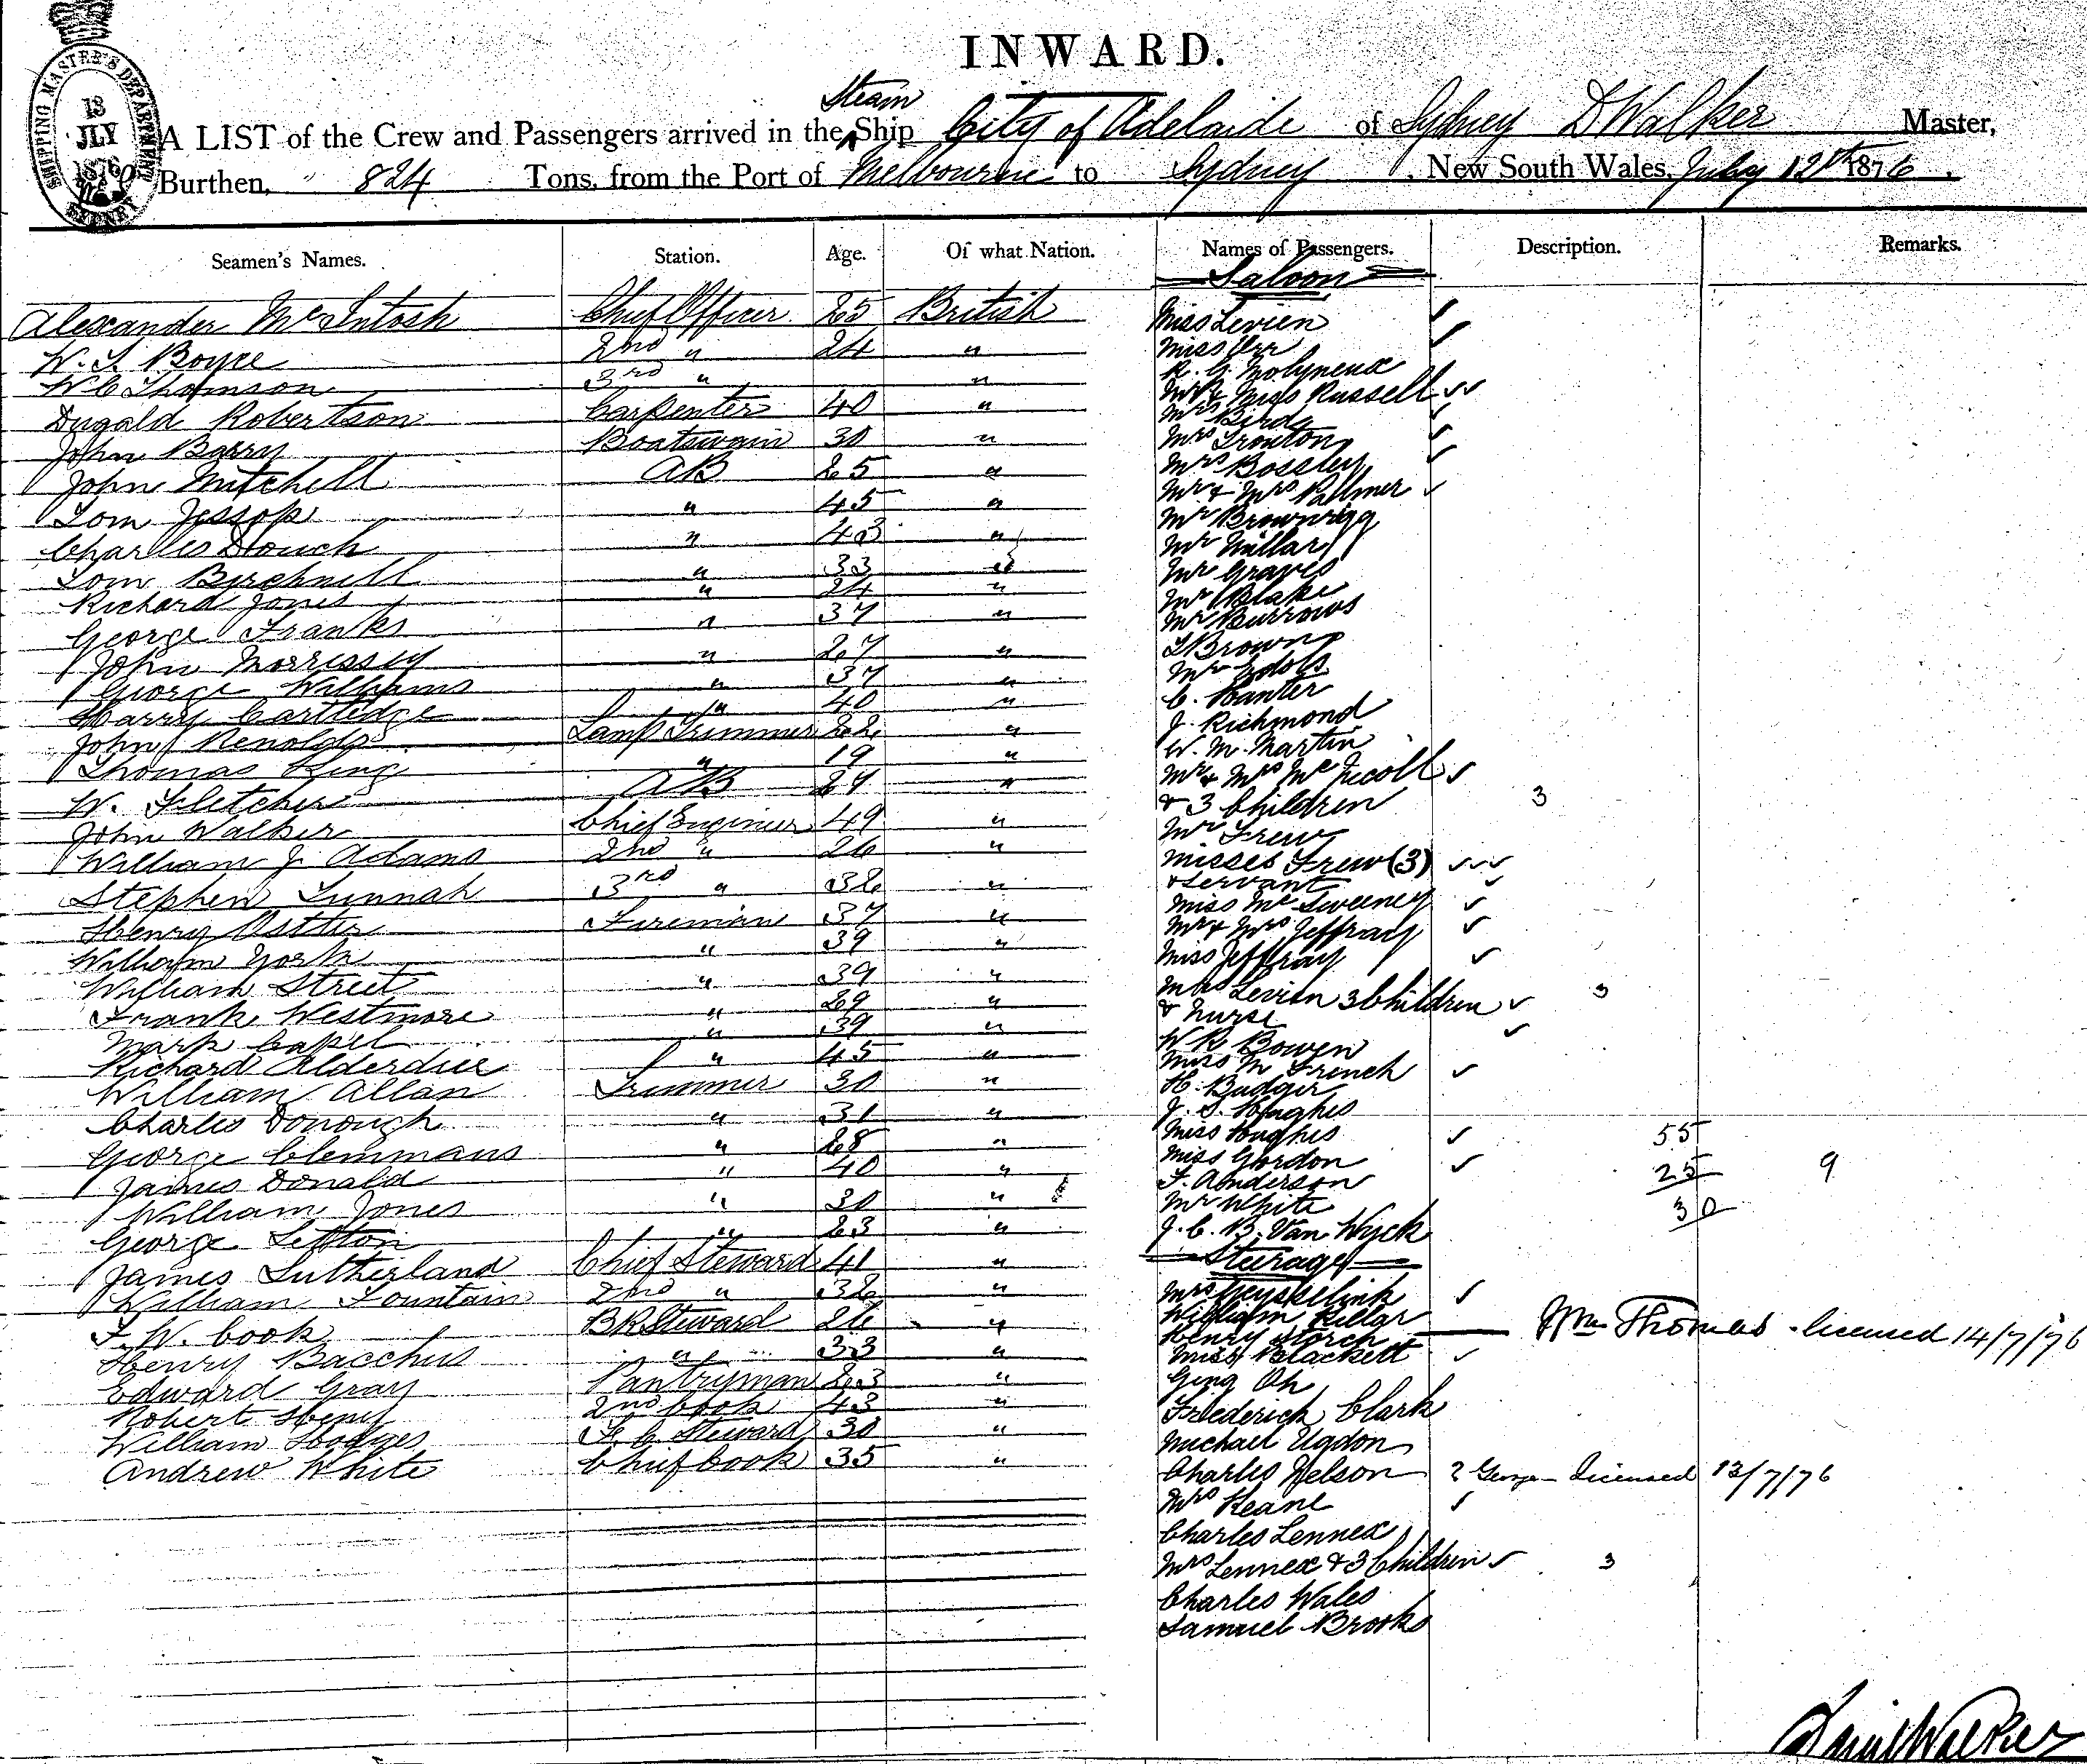 INWARD.
SHIPPING MASTER'S DEPARTMENT
13
JLY
1876
SYDNEY
Steam
A LIST of the Crew and Passengers arrived in the ^ Ship City of Adelaide of Sydney D Walker Master,
Burthen, 824 Tons, from the Port of Melbourne to Sydney, New South Wales, July 12th 1876.
Seamen's Names. Station. Age. Of what Nation. Names of Passengers. Description. Remarks.
Saloon
Alexander McIntosh Chief Officer 25 British
W. S. Boyre 2nd " 24 "
W C Thomson 3rd " "
Dugald Robertson Carpenter 40 "
John Barry Boatswain 30 "
John Mitchell AB 25 "
Tom Jessop " 45 "
Charles Douch " 43 "
Tom Birchnell " 33 "
Richard Jones " 24 "
George Franks " 37 "
John Morrissey " 27 "
George Williams " 37 "
Harry Cartredge " 40 "
John Renolds Lamp Trimmer 22 "
Thomas King " 19 "
W. Fletcher AB 27 "
John Walker Chief Engineer 49 "
William J. Adams 2nd " 26 "
Stephen Tunnah 3rd " 32 "
Henry Fireman 37 "
William York " 39 "
William Street " 39 "
Frank Westmore " 29 "
Mark Capel " 39 "
Richard Alderdice " 45 "
William Allan Trimmer 30 "
Charles Donough " 31 "
George Clemmans " 28 "
James Donald " 40 "
William Jones " 30 "
George Sefton " 23 "
James Sutherland Chief Steward 41 "
William Fountain 2nd " 32 "
F. W. Cook BR Steward 26 "
Henry Bacchus " 33 "
Edward Gray Pantryman 23 "
Robert Henry 2nd Cook 43 "
William Hodges F. C. Steward 30 "
Andrew White Chief Cook 35 "
Miss Levien ✓
Miss Orr ✓
R. G. Molyneux
Mr & Miss Russell ✓✓
Mrs Bird ✓
Mrs Trouton ✓
Mrs Bossley ✓
Mr & Mrs Palmer ✓
Mr Brownrigg
Mr Millar
Mr Graves
Mr Blake
Mr Burrows
T Brown
Mr Edols
C. Hanter
J. Richmond
W. M. Martin
Mr & Mrs McNicoll ✓
& 3 Children 3
Mr Frew
Misses Frew (3) ✓✓✓
& Servant ✓
Miss McSweeney ✓
Mr & Mrs Jeffray ✓
Miss Jeffray ✓
Mrs Levien 3 Children ✓ 3
& Nurse ✓
W R Bowen
Miss M French ✓
H. Budger
J. S. Hughes
Miss Hughes ✓ 55
Miss Gordon ✓ 25 9
F. Anderson
Mr White 30
J. C. B. Van Wyck
Steerage
Mrs Geyskelink ✓
William Pillar
Henry Storch Wm Thomas licensed 14/7/76
Miss Blackett ✓
Ging Ah
Frederick Clark
Michael Ugdon
Charles Nelson ? George Licensed 13/7/76
Mrs Keane ✓
Charles Lennex
Mrs Lennex & 3 Children ✓ 3
Charles Wales
Samuel Brooks
David Walker